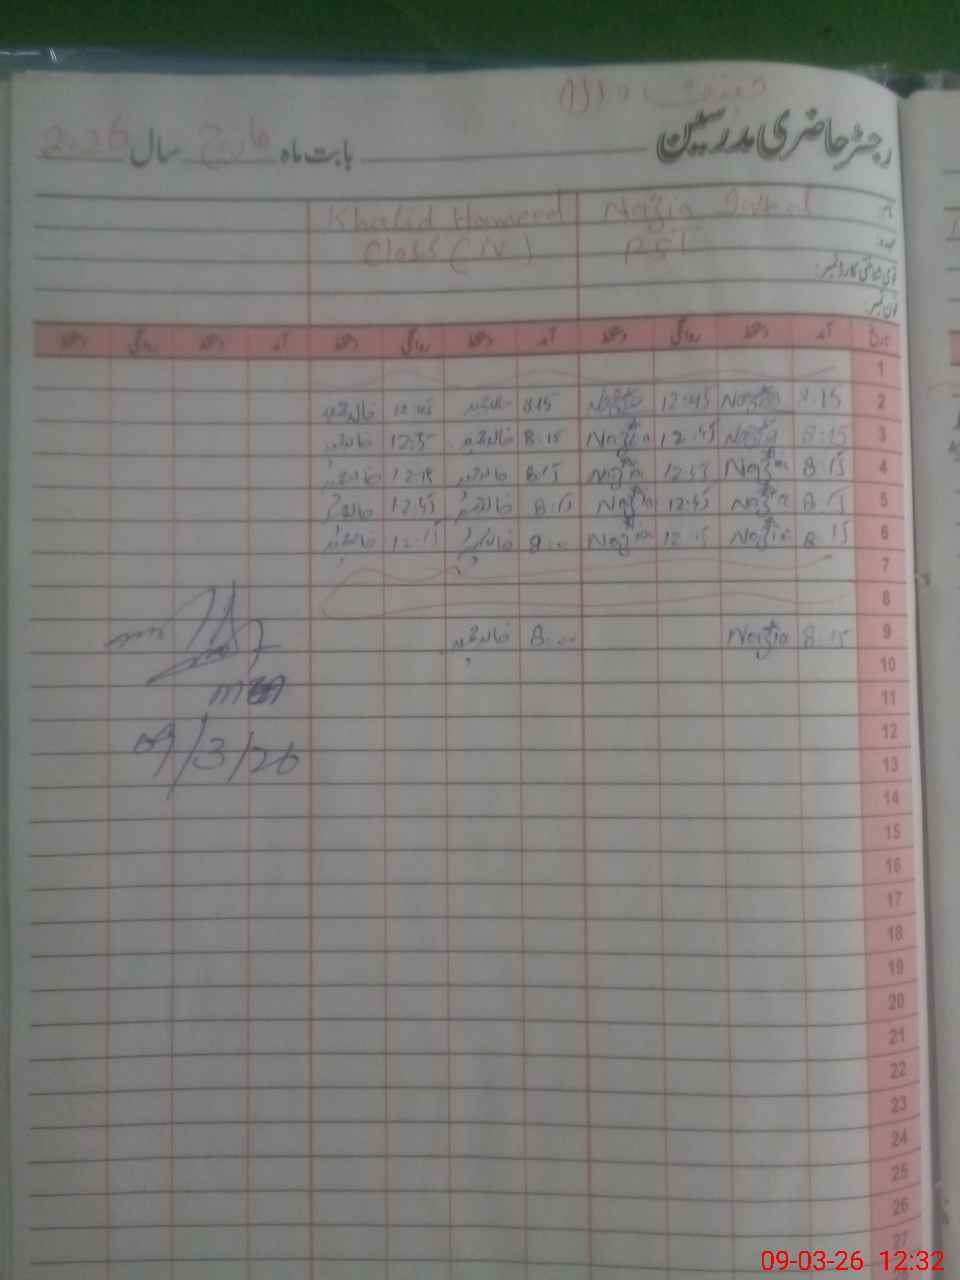 رجسٹر حاضری مدرسین بابت ماہ مارچ سال 2026
نام: Nazia Iqbal Khalid Hameed
عہدہ: PST Class (iv)
قومی شناختی کارڈ نمبر:
فون نمبر:
تاریخ آمد دستخط روانگی دستخط آمد دستخط روانگی دستخط آمد دستخط روانگی دستخط
1
2 8.15 Nazia 12.45 Nazia 8.15 خالد حمید 12.45 خالد حمید
3 8.15 Nazia 12.45 Nazia 8.15 خالد حمید خالد حمید
4 8.15 Nazia Nazia 8.15 خالد حمید خالد حمید
5 8.15 Nazia 12.45 Nazia 8.15 خالد حمید 12.45 خالد حمید
6 8.15 Nazia 12.15 Nazia 8.00 خالد حمید 12.15 خالد حمید
7
8
9 8.15 Nazia 8.00 خالد حمید
10
11
12
09/3/26
13
14
15
16
17
18
19
20
21
22
23
24
25
26
27
09-03-26 12:32